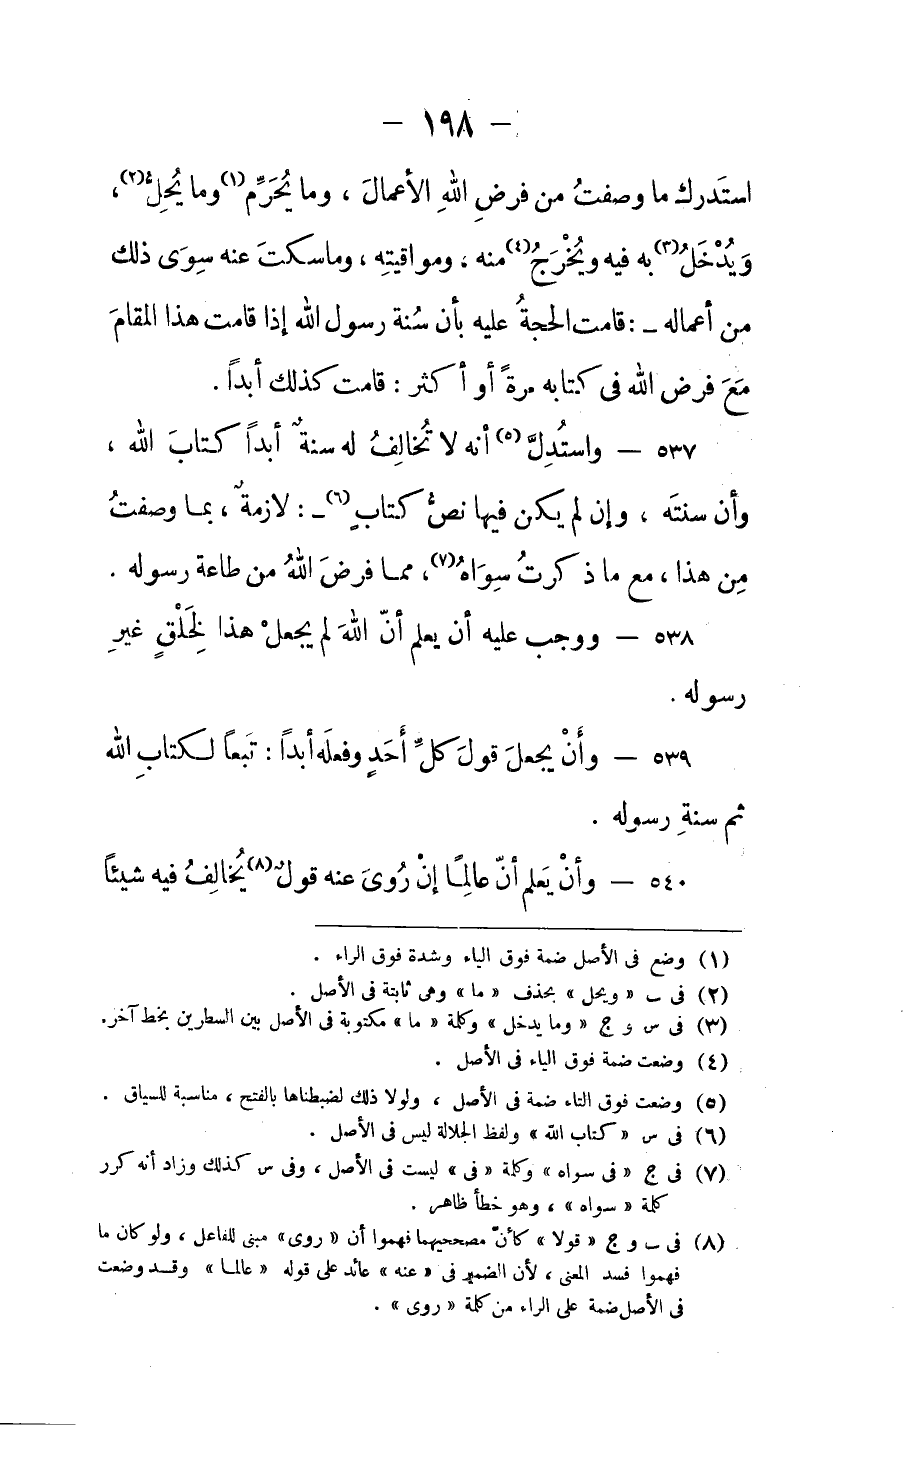 — ١٩٨ —
استَدرك ما وصفتُ من فرضِ اللهِ الأعمالَ ، وما يُحَرِّم(١) وما يُحِلُّ(٢) ،
وَيُدْخَلُ(٣) به فيه ويُخْرَجُ(٤) منه ، ومواقيتِه ، وما سكتَ عنه سِوَى ذلك
مِن أعماله ــ : قامت الحجةُ عليه بأن سُنة رسول الله إذا قامت هذا المقامَ
مَعَ فرض الله فى كتابه مرةً أو أكثر : قامت كذلك أبداً .
٥٣٧ — واستُدِلَّ(٥) أنه لا تُخالِفُ له سنةٌ أبداً كتابَ الله ،
وأن سنتَه ، وإن لم يكن فيها نصُّ كتابٍ(٦) ــ : لازمةٌ ، بما وصفتُ
مِن هذا ، مع ما ذكرتُ سِوَاهُ(٧) ، مما فرضَ اللهُ من طاعة رسوله .
٥٣٨ — ووجب عليه أن يعلم أنّ اللهَ لم يجعلْ هذا لِخَلْقٍ غيرِ
رسوله .
٥٣٩ — وأَنْ يجعلَ قولَ كلِّ أَحَدٍ وفعلَه أبداً : تَبَعاً لكتابِ الله
ثم سنةِ رسوله .
٥٤٠ — وأنْ يَعلم أنّ عالِمًا إنْ رُوىَ عنه قولٌ(٨) يُخالِفُ فيه شيئاً
(١) وضع فى الأصل ضمة فوق الياء وشدة فوق الراء .
(٢) فى ب « ويحل » بحذف « ما » وهى ثابتة فى الأصل .
(٣) فى س و ج « وما يدخل » وكلمة « ما » مكتوبة فى الأصل بين السطرين بخط آخر.
(٤) وضعت ضمة فوق الياء فى الأصل .
(٥) وضعت فوق التاء ضمة فى الأصل ، ولولا ذلك لضبطناها بالفتح ، مناسبة للسياق .
(٦) فى س « كتاب الله » ولفظ الجلالة ليس فى الأصل .
(٧) فى ج « فى سواه » وكلمة « فى » ليست فى الأصل ، وفى س كذلك وزاد أنه كرر
كلمة « سواه » ، وهو خطأ ظاهر .
(٨) فى ب و ج « قولا » كأنّ مصححيهما فهموا أن « روى » مبنى للفاعل ، ولو كان ما
فهموا فسد المعنى ، لأن الضمير فى « عنه » عائد على قوله « عالما » وقد وضعت
فى الأصل ضمة على الراء من كلمة « روى » .